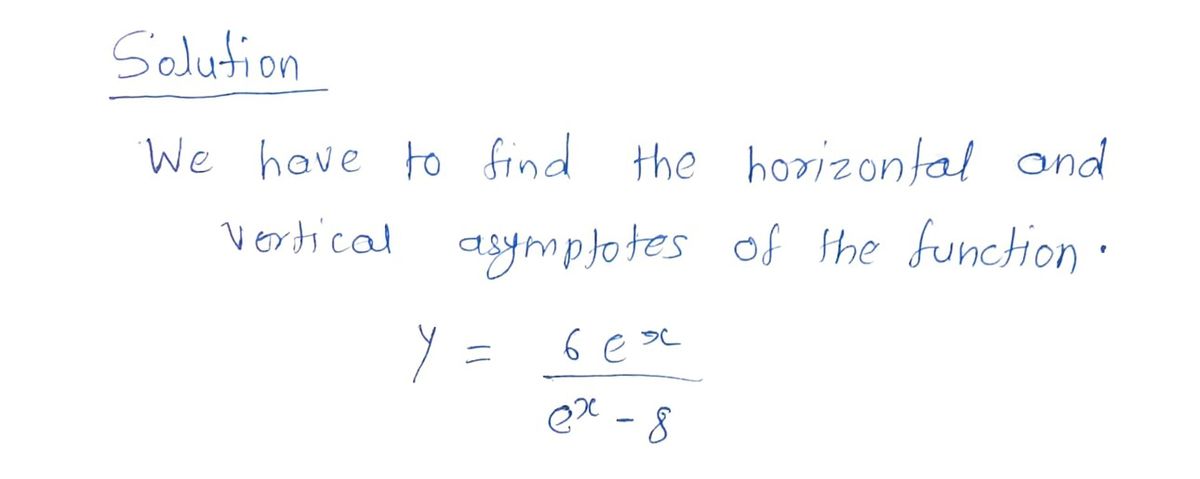 Solution
We have to find the horizontal and
vertical asymptotes of the function.
y = 6e^x / e^x - 8